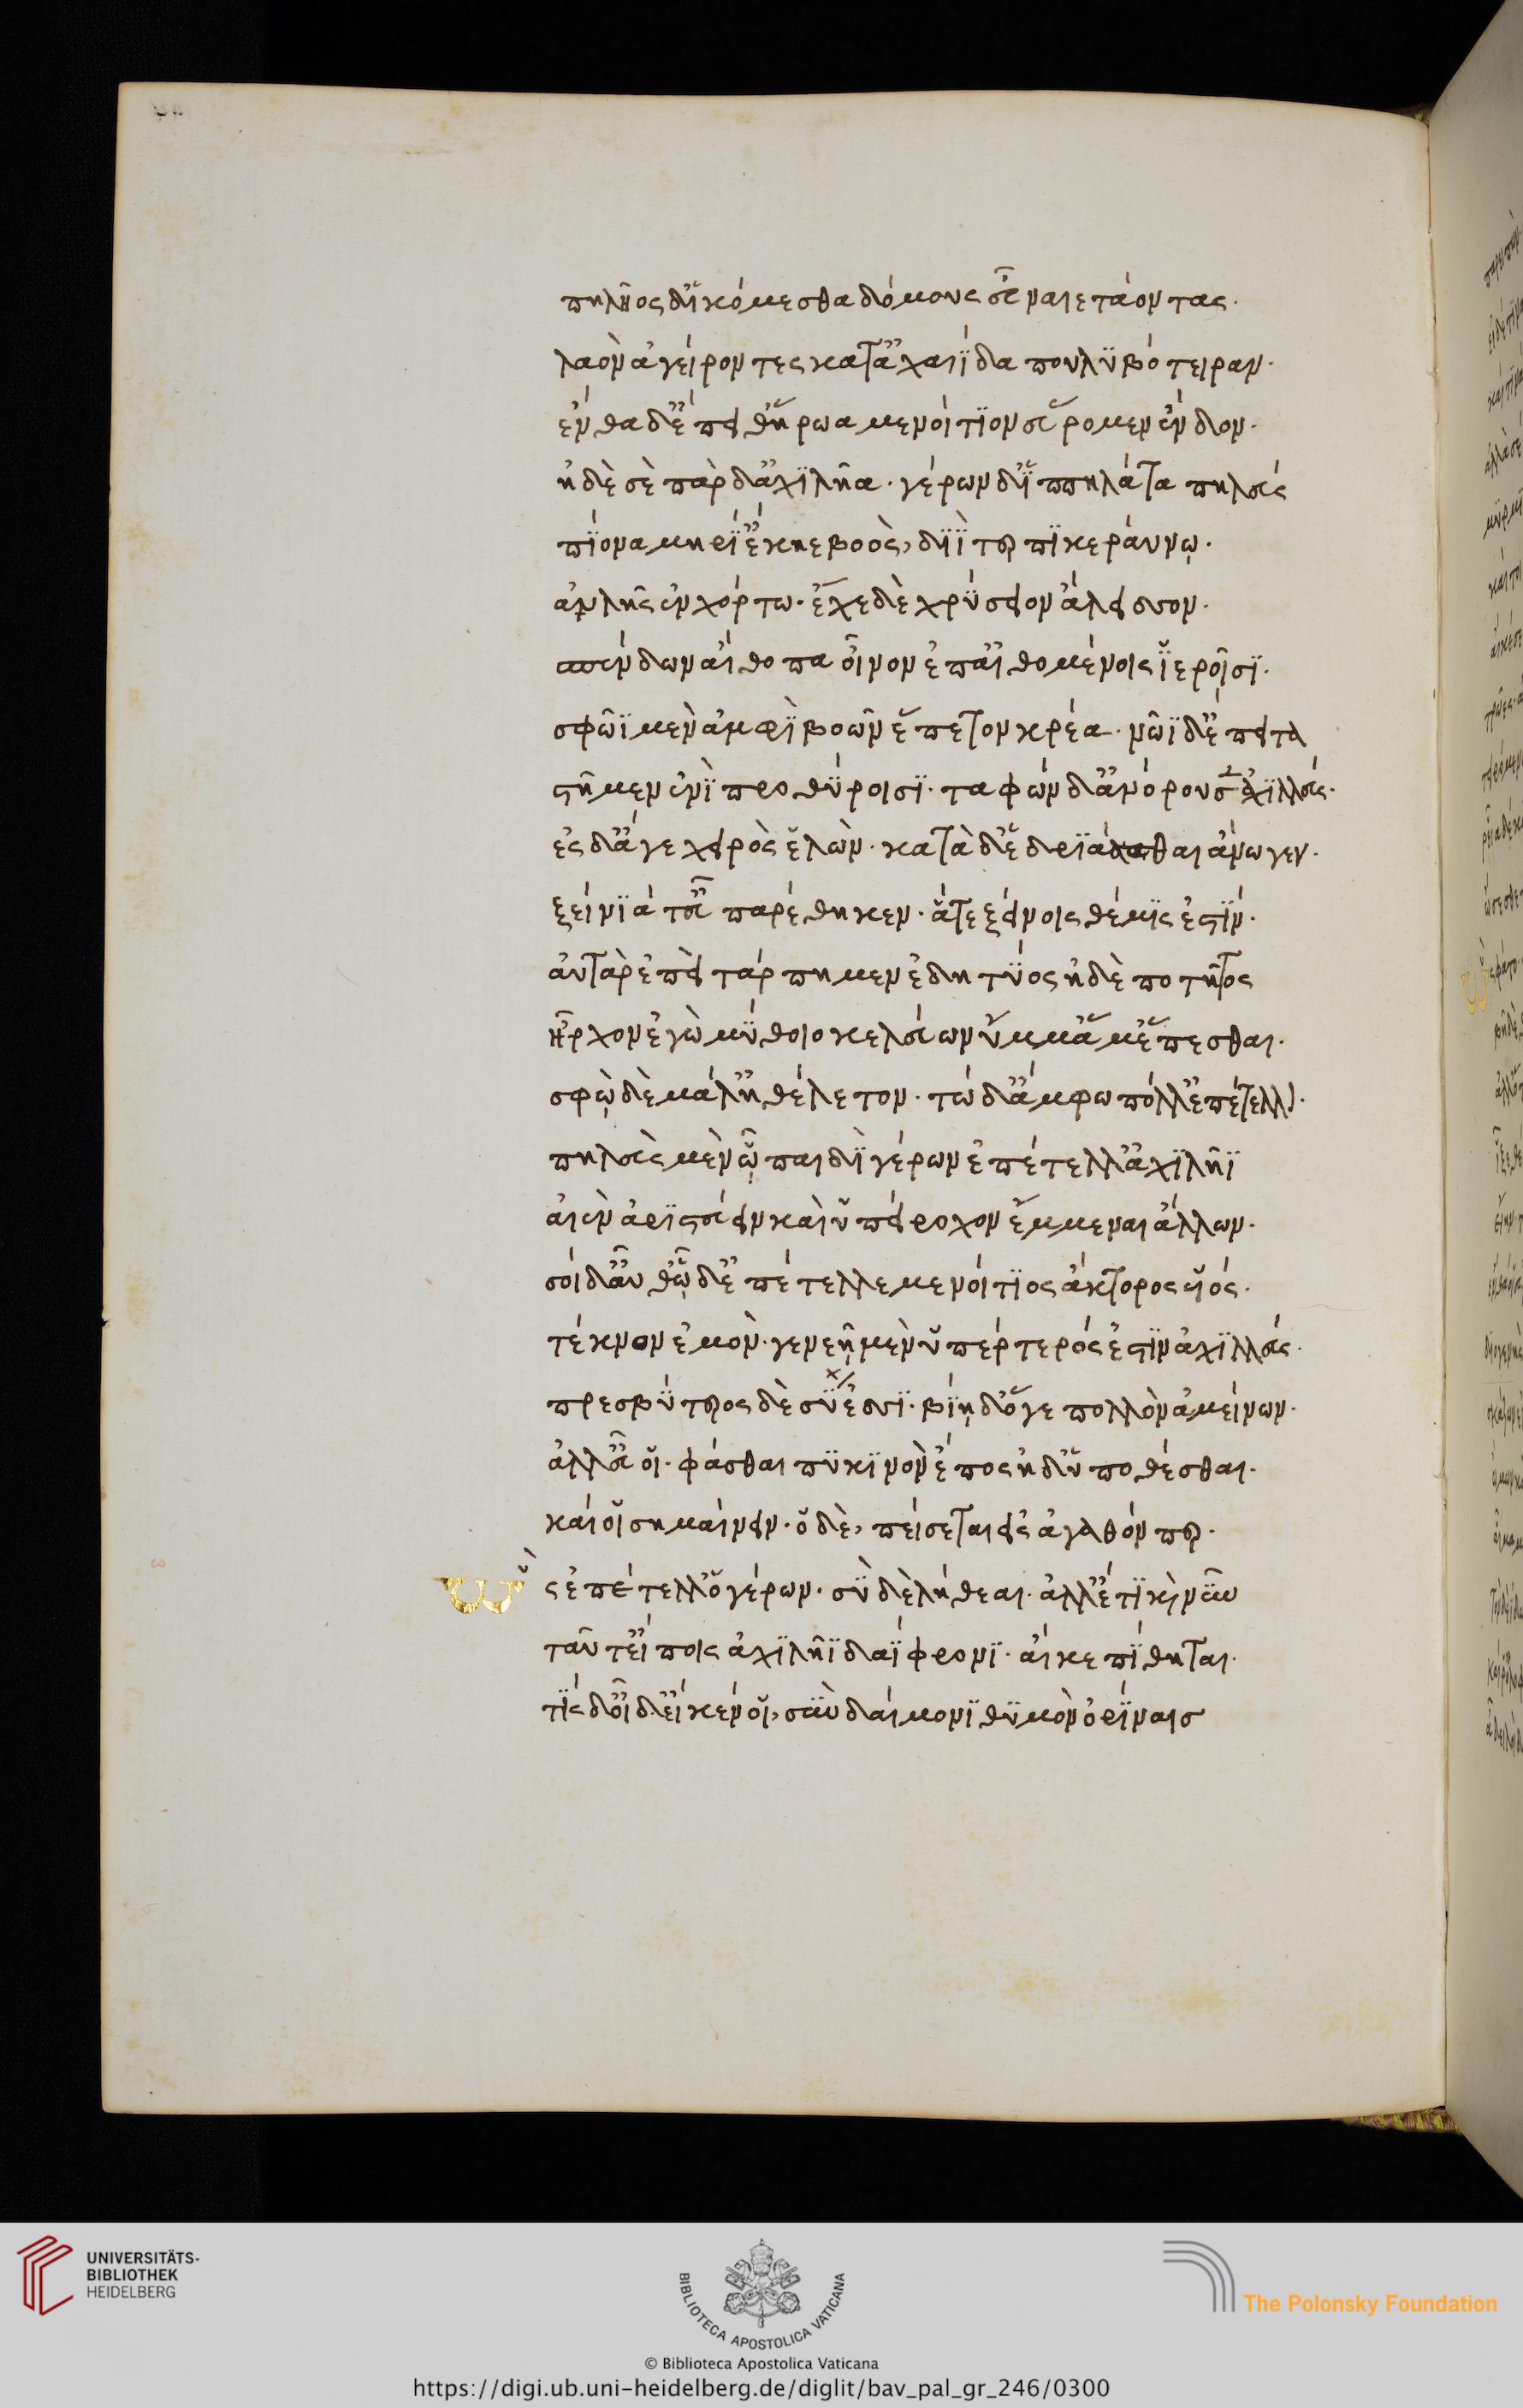 πηλῆος δ' ἱκόμεσθα δόμους εὖ ναιετάοντας·
λαὸν ἀγείροντες κατ' ἀχαιΐδα πουλυβότειραν·
ἔνθα δ' ἔπειθ' ἥρωα μενοίτιον εὕρομεν ἔνδον·
ἠδὲ σὲ πὰρ δ' ἀχιλῆα· γέρων δ' ἱππηλάτα πηλεύς
πίονα μηρί' ἔκηε βοὸς, διῒ τερπικεραύνῳ·
αὐλῆς ἐν χόρτω· ἔχε δὲ χρύσειον ἄλεισον·
σπένδων αἴθοπα οἶνον ἐπ' αἰθομένοις ἱεροῖσι·
σφῶϊ μὲν ἀμφὶ βοῶν ἕπετον κρέα· νῶϊ δ' ἔπειτα
στῆμεν ἐνὶ προθύροισι· ταφὼν δ' ἀνόρουσεν ἀχιλλεύς·
ἐς δ' ἄγε χειρὸς ἑλὼν· κατὰ δ' ἑδριάασθαι ἄνωγεν·
ξείνιά τ' εὖ παρέθηκεν· ἅτε ξείνοις θέμις ἐστίν·
αὐτὰρ ἐπεὶ τάρπημεν ἐδητύος ἠδὲ ποτῆτος
ἦρχον ἐγὼ μύθοιο κελεύων ὔμμ' ἅμ' ἕπεσθαι·
σφὼ δὲ μάλ' ἠθέλετον· τὼ δ' ἄμφω πόλλ' ἐπέτελλον·
πηλεὺς μὲν ᾧ παιδὶ γέρων ἐπέτελλ' ἀχιλῆϊ
αἰὲν ἀριστεύειν καὶ ὑπείροχον ἔμμεναι ἄλλων·
σοὶ δ' αὖθ' ὧδ' ἐπέτελλε μενοίτιος ἄκτορος υἱός·
τέκνον ἐμὸν· γενεῇ μὲν ὑπέρτερός ἐστιν ἀχιλλεύς·
πρεσβύτερος δὲ σύ ἐσσι· βίῃ δ' ὅγε πολλὸν ἀμείνων·
ἀλλ' εὖ οἱ· φάσθαι πυκινὸν ἔπος ἠδ' ὑποθέσθαι·
καί οἱ σημαίνειν· ὁ δὲ, πείσεται εἰς ἀγαθόν περ·
ὣς ἐπέτελλ' ὁ γέρων· σὺ δὲ λήθεαι· ἀλλ' ἔτι καὶ νῦν
ταῦτ' εἴποις ἀχιλῆϊ δαΐφρονι· αἴ κε πίθηται·
τίς δ' οἶδ' εἴ κέν οἱ, σὺν δαίμονι θυμὸν ὀρίναις
UNIVERSITÄTS-
BIBLIOTHEK
HEIDELBERG
BIBLIOTECA APOSTOLICA VATICANA
The Polonsky Foundation
© Biblioteca Apostolica Vaticana
https://digi.ub.uni-heidelberg.de/diglit/bav_pal_gr_246/0300